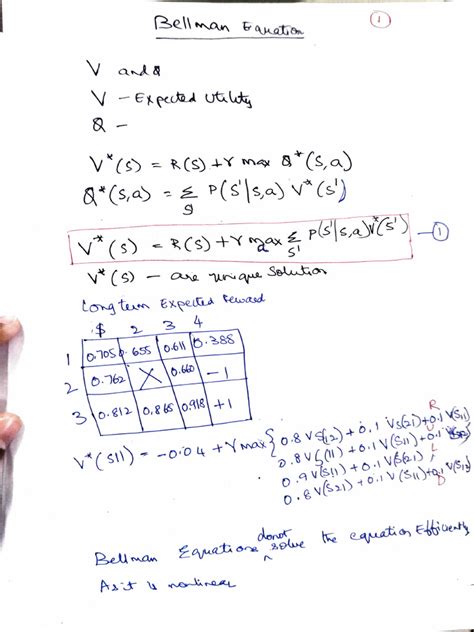 Bellman Equation
1
V and Q
V - Expected Utility
Q -
V*(S) = R(S) + γ max Q*(S,a)
Q*(S,a) = Σ P(S'|S,a) V*(S')
S'
V*(S) = R(S) + γ max Σ P(S'|S,a) V*(S') — 1
a S'
V*(S) - are unique solution
Long term Expected Reward
2 3 4
1 0.705 0.655 0.611 0.388
2 0.762 X 0.660 -1
3 0.812 0.865 0.918 +1
R
V*(S11) = -0.04 + γ max { 0.8 V(S12) + 0.1 V(S21) + 0.1 V(S11)
0.8 V(S11) + 0.1 V(S11) + 0.1
0.9 V(S11) + 0.1 V(S21) L
0.8 V(S21) + 0.1 V(S11) + 0.1 V(S12)
donot
Bellman Equations ^ solve the equation Efficiently
As it is nonlinear